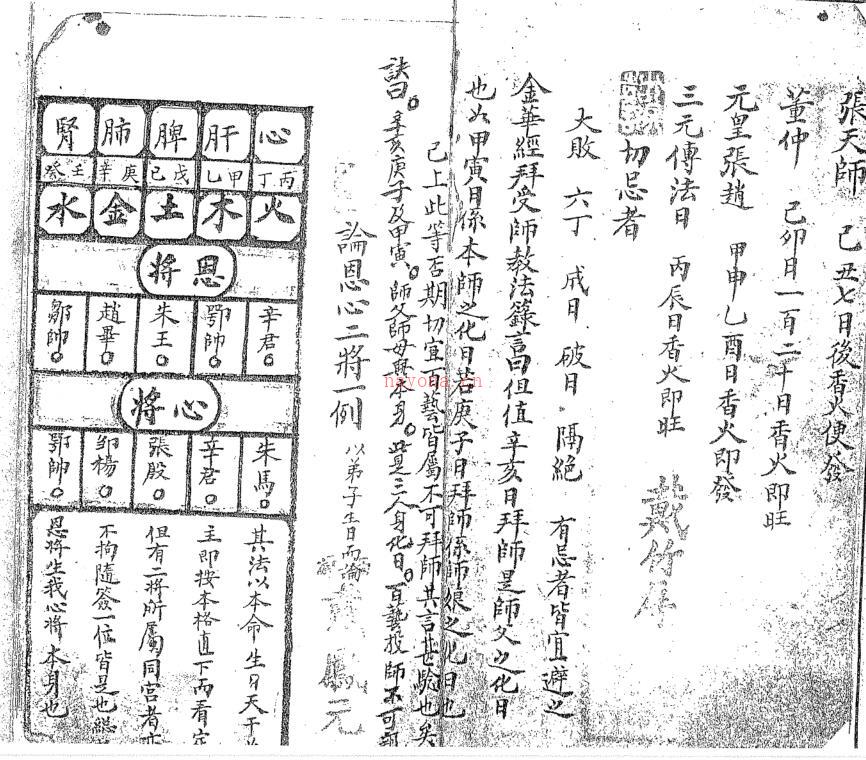 張天師 己丑七日後香火便發
董仲 己卯日一百二十日香火即旺
元皇張趙 甲申乙酉日香火即發
三元傳法日 丙辰日香火即旺
切忌者
大敗 六丁 戌日 破日 隔絕 有忌者皆宜避之
金華經拜受師教法籙言曰但值辛亥日拜師是師父之化日
也如甲寅日係本師之化日若庚子日拜師係師娘之化日也
已上此等否期切宜百藝皆屬不可拜師其言甚驗也矣
訣曰。辛亥庚子及甲寅。師父師母與本身。此是三人身化日。百藝投師不可
論恩心二將一例 以弟子生日而論
戴竹
元
心 肝 脾 肺 腎
丙丁 甲乙 戊己 庚辛 壬癸
火 木 土 金 水
恩將
辛君。 鄂帥。 朱王。 趙畢。 鄒帥。
心將
朱馬。 辛君。 張殷。 鄒楊。 鄂帥。
其法以本命生日天干
主即按本格直下而看定
但有二將所屬同宮者
不拘隨簽一位皆是也總
恩將生我心將本身也
nayona.cn